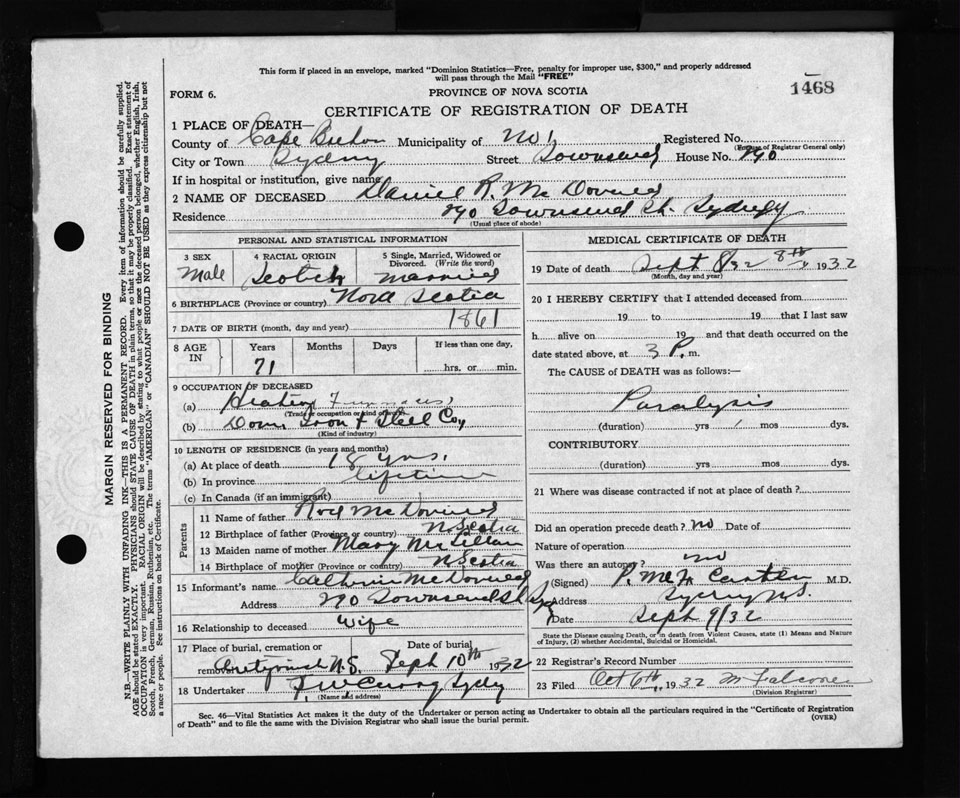 This form if placed in an envelope, marked "Dominion Statistics—Free, penalty for improper use, $300," and properly addressed
will pass through the Mail "FREE"
1468
FORM 6.
PROVINCE OF NOVA SCOTIA
CERTIFICATE OF REGISTRATION OF DEATH
1 PLACE OF DEATH—
County of Cape Breton Municipality of No 1 Registered No.
(For use of Registrar General only)
City or Town Sydney Street Townsend House No. 290
If in hospital or institution, give name
2 NAME OF DECEASED Daniel R. McDonald
Residence 290 Townsend St. Sydney
(Usual place of abode)
PERSONAL AND STATISTICAL INFORMATION
3 SEX Male
4 RACIAL ORIGIN Scotch
5 Single, Married, Widowed or Divorced. (Write the word) Married
6 BIRTHPLACE (Province or country) Nova Scotia
7 DATE OF BIRTH (month, day and year) 1861
8 AGE IN Years 71 Months Days If less than one day, hrs. or min.
9 OCCUPATION OF DECEASED
(a) Heating Furnaces
(Trade or occupation or kind of work)
(b) Dom. Iron & Steel Coy
(Kind of industry)
10 LENGTH OF RESIDENCE (in years and months)
(a) At place of death 18 yrs.
(b) In province lifetime
(c) In Canada (if an immigrant)
Parents
11 Name of father Rod McDonald
12 Birthplace of father (Province or country) N. Scotia
13 Maiden name of mother Mary McLellan
14 Birthplace of mother (Province or country) N. Scotia
15 Informant's name McDonald
Address 290 Townsend St Syd
16 Relationship to deceased Wife
17 Place of burial, cremation or removal Antigonish N.S. Date of burial Sept 10th 1932
18 Undertaker Sydney
(Name and address)
MEDICAL CERTIFICATE OF DEATH
19 Date of death Sept 8/32 8th 1932
(Month, day and year)
20 I HEREBY CERTIFY that I attended deceased from
19 to 19 that I last saw
h alive on 19 and that death occurred on
date stated above, at 3 P. m.
The CAUSE of DEATH was as follows:—
Paralysis
(duration) yrs mos dys.
CONTRIBUTORY
(duration) yrs mos dys.
21 Where was disease contracted if not at place of death?
Did an operation precede death? no Date of
Nature of operation
Was there an autopsy? no
(Signed) M.D.
Address Sydney N.S.
Date Sept 9/32
State the Disease causing Death, or in death from Violent Causes, state (1) Means and Nature
of Injury, (2) whether Accidental, Suicidal or Homicidal.
22 Registrar's Record Number
23 Filed Oct 6th 1932
(Division Registrar)
Sec. 46—Vital Statistics Act makes it the duty of the Undertaker or person acting as Undertaker to obtain all the particulars required in the "Certificate of Registration
of Death" and to file the same with the Division Registrar who shall issue the burial permit.
(OVER)
MARGIN RESERVED FOR BINDING
N.B.—WRITE PLAINLY WITH UNFADING INK—THIS IS A PERMANENT RECORD. Every item of information should be carefully supplied.
AGE should be stated EXACTLY. PHYSICIANS should STATE CAUSE OF DEATH in plain terms, so that it may be properly classified. Exact statement of
OCCUPATION is very important. RACIAL ORIGIN will be described by stating to what people or race the deceased person belonged, whether English, Irish,
Scotch, French, German, Russian, Ruthenian, etc. The terms "AMERICAN" or "CANADIAN" SHOULD NOT BE USED as they express citizenship but not
a race or people. See instructions on back of Certificate.